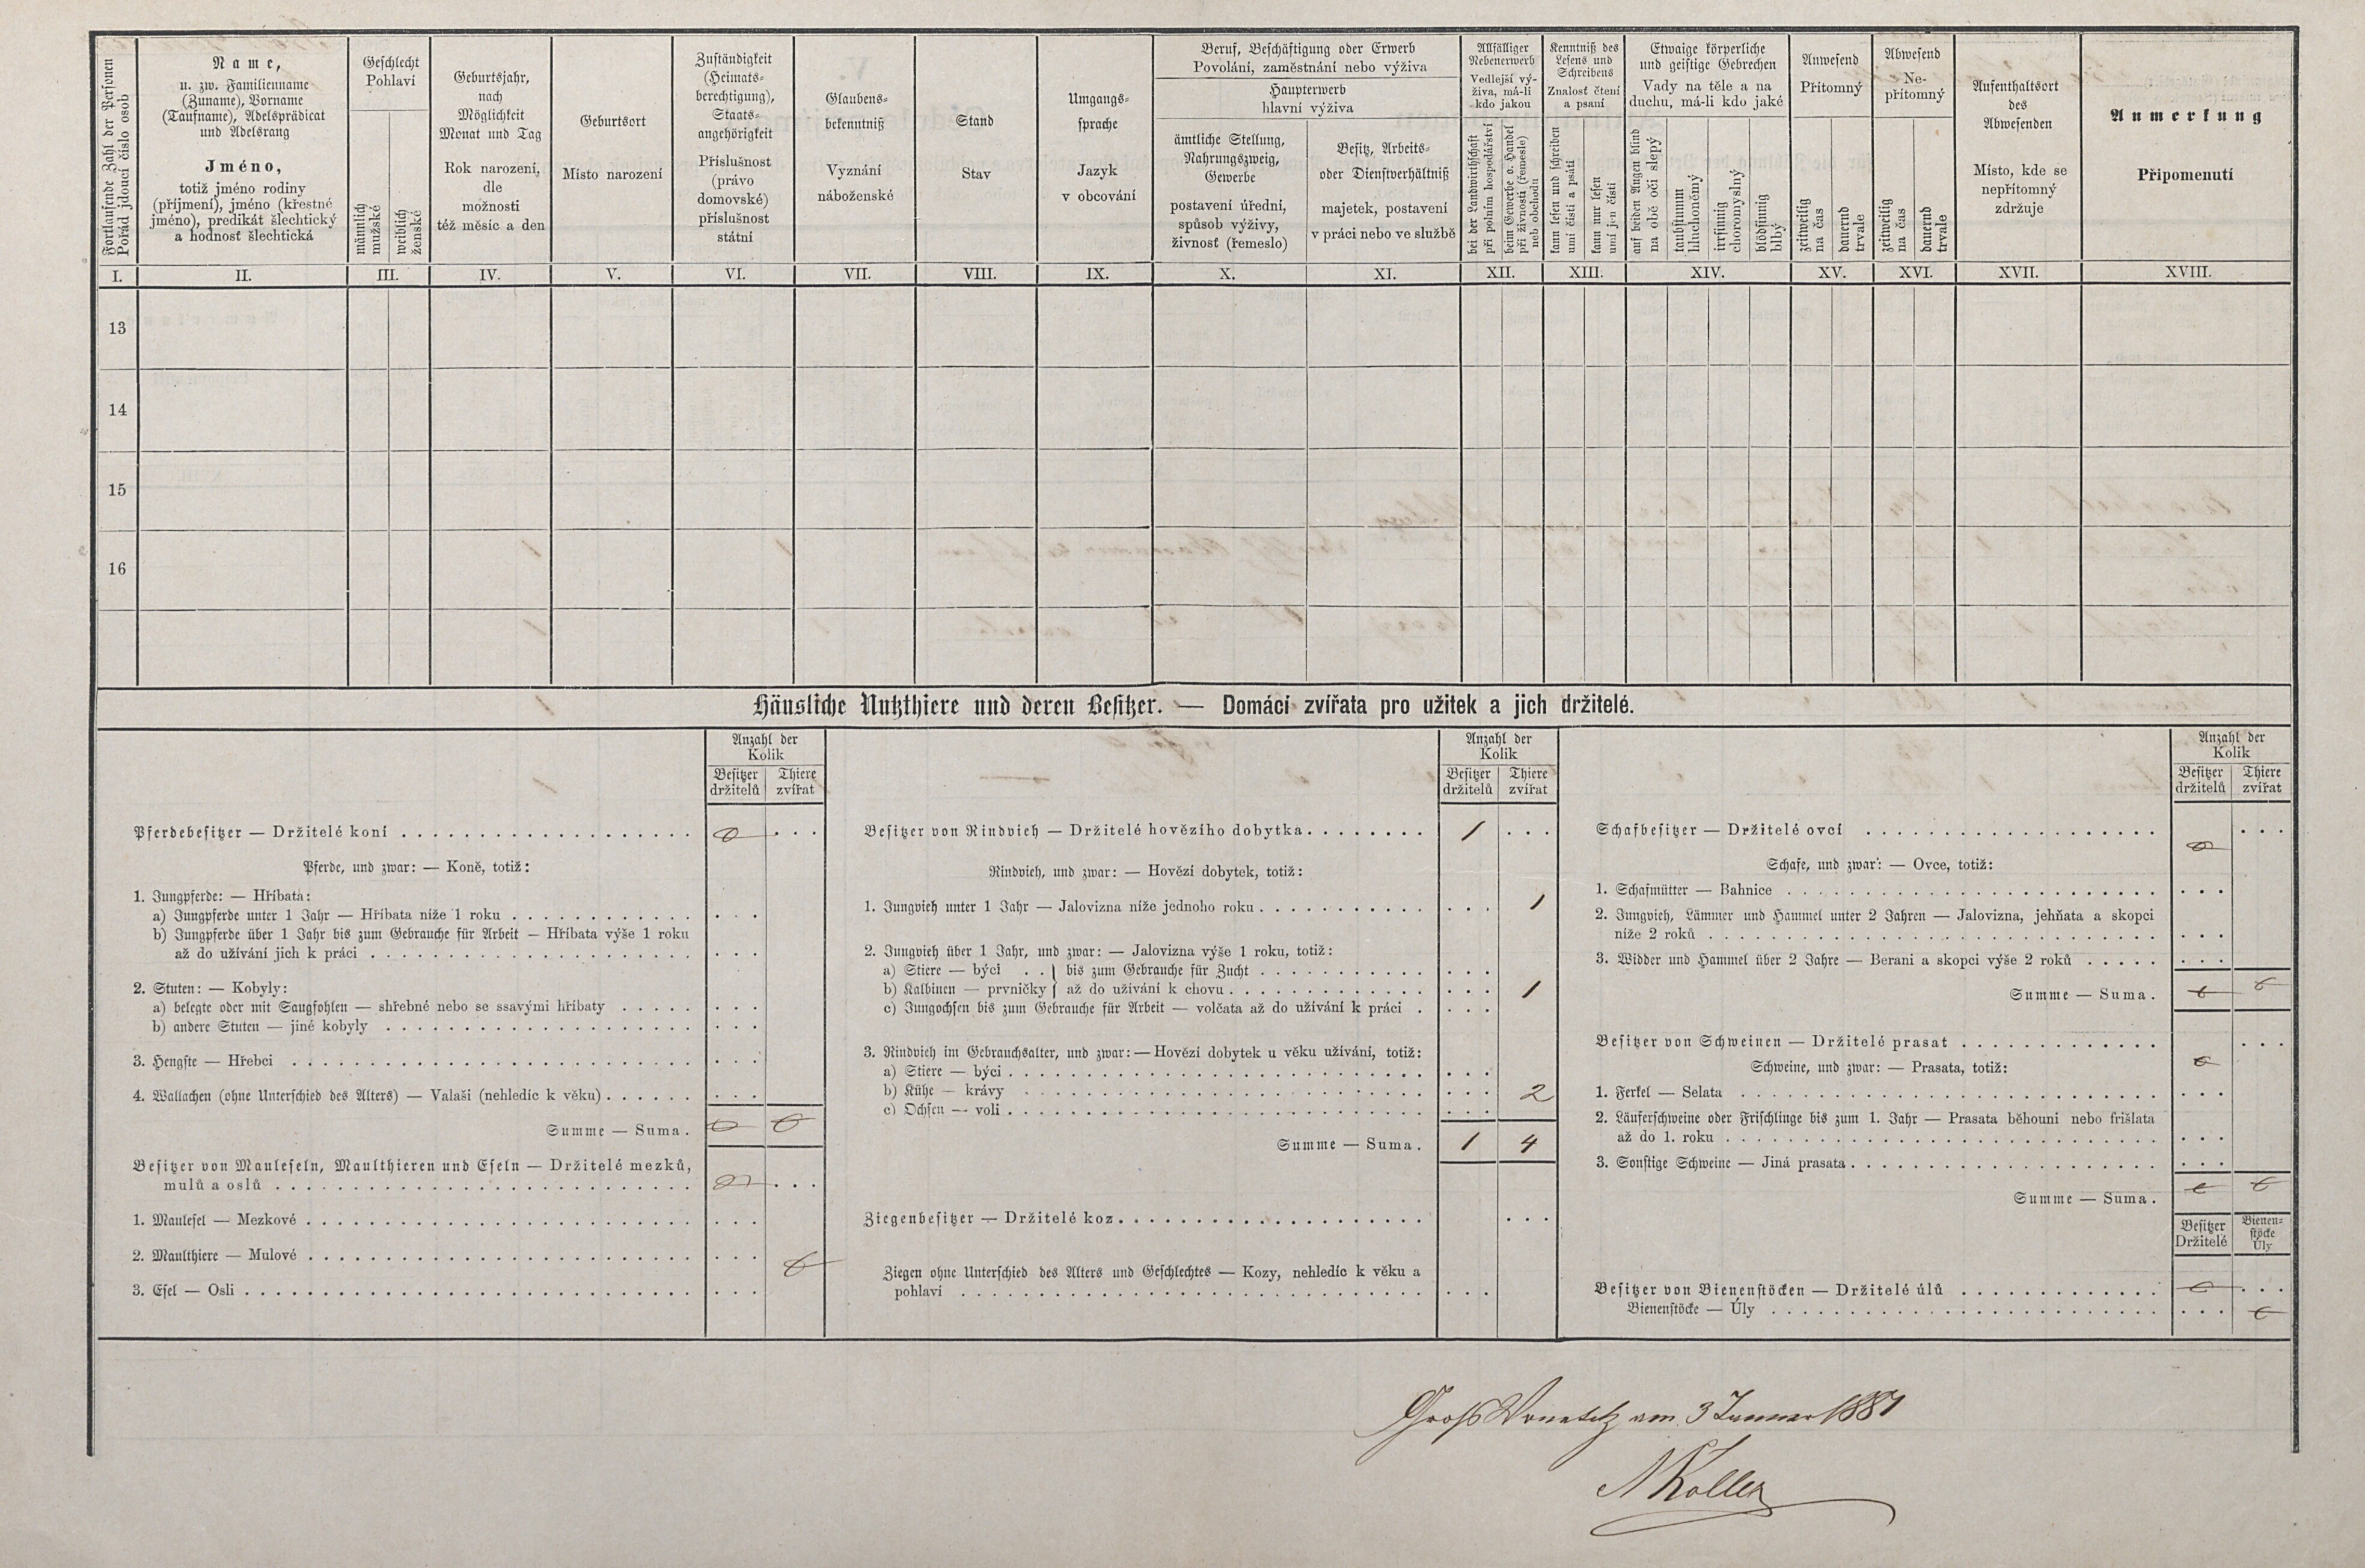 Fortlaufende Zahl der Personen
Pořád jdoucí číslo osob
Name,
u. zw. Familienname
(Zuname), Vorname
(Taufname), Adelsprädicat
und Adelsrang
Jméno,
totiž jméno rodiny
(příjmení), jméno (křestné
jméno), predikát šlechtický
a hodnosť šlechtická
Geschlecht
Pohlaví
männlich
mužské
weiblich
ženské
Geburtsjahr,
nach
Möglichkeit
Monat und Tag
Rok narození,
dle
možnosti
též měsíc a den
Geburtsort
Místo narození
Zuständigkeit
(Heimats-
berechtigung),
Staats-
angehörigkeit
Příslušnost
(právo
domovské)
příslušnost
státní
Glaubens-
bekenntniß
Vyznání
náboženské
Stand
Stav
Umgangs-
sprache
Jazyk
v obcování
Beruf, Beschäftigung oder Erwerb
Povolání, zaměstnání nebo výživa
Haupterwerb
hlavní výživa
ämtliche Stellung,
Nahrungszweig,
Gewerbe
postavení úřední,
spůsob výživy,
živnosť (řemeslo)
Besitz, Arbeits-
oder Dienstverhältniß
majetek, postavení
v práci nebo ve službě
Allfälliger
Nebenerwerb
Vedlejší vý-
živa, má-li
kdo jakou
bei der Landwirthschaft
při polním hospodářství
beim Gewerbe o. Handel
při živnosti (řemeslo)
neb obchodu
Kenntniß des
Lesens und
Schreibens
Znalosť čtení
a psaní
kann lesen und schreiben
umí čísti a psáti
kann nur lesen
umí jen čísti
Etwaige körperliche
und geistige Gebrechen
Vady na těle a na
duchu, má-li kdo jaké
auf beiden Augen blind
na obě oči slepý
taubstumm
hluchoněmý
irrsinnig
choromyslný
blödsinnig
blbý
Anwesend
Přítomný
zeitweilig
na čas
dauernd
trvale
Abwesend
Ne-
přítomný
zeitweilig
na čas
dauernd
trvale
Aufenthaltsort
des
Abwesenden
Místo, kde se
nepřítomný
zdržuje
Anmerkung
Připomenutí
I. II. III. IV. V. VI. VII. VIII. IX. X. XI. XII. XIII. XIV. XV. XVI. XVII. XVIII.
13
14
15
16
Häusliche Nutzthiere und deren Besitzer. — Domácí zvířata pro užitek a jich držitelé.
Anzahl der
Kolik
Besitzer
držitelů
Thiere
zvířat
Pferdebesitzer — Držitelé koní 0
Pferde, und zwar: — Koně, totiž:
1. Jungpferde: — Hříbata:
a) Jungpferde unter 1 Jahr — Hříbata níže 1 roku
b) Jungpferde über 1 Jahr bis zum Gebrauche für Arbeit — Hříbata výše 1 roku
až do užívání jich k práci
2. Stuten: — Kobyly:
a) belegte oder mit Saugfohlen — shřebné nebo se ssavými hříbaty
b) andere Stuten — jiné kobyly
3. Hengste — Hřebci
4. Wallachen (ohne Unterschied des Alters) — Valaši (nehledíc k věku)
Summe — Suma. 0 0
Besitzer von Mauleseln, Maulthieren und Eseln — Držitelé mezků,
mulů a oslů 0
1. Maulesel — Mezkové
2. Maulthiere — Mulové 0
3. Esel — Osli
Anzahl der
Kolik
Besitzer
držitelů
Thiere
zvířat
Besitzer von Rindvieh — Držitelé hovězího dobytka 1
Rindvieh, und zwar: — Hovězí dobytek, totiž:
1. Jungvieh unter 1 Jahr — Jalovizna níže jednoho roku 1
2. Jungvieh über 1 Jahr, und zwar: — Jalovizna výše 1 roku, totiž:
a) Stiere — býci . . } bis zum Gebrauche für Zucht
b) Kalbinen — prvničky } až do užívání k chovu 1
c) Jungochsen bis zum Gebrauche für Arbeit — volčata až do užívání k práci
3. Rindvieh im Gebrauchsalter, und zwar: — Hovězí dobytek u věku užívání, totiž:
a) Stiere — býci
b) Kühe — krávy 2
c) Ochsen — voli
Summe — Suma. 1 4
Ziegenbesitzer — Držitelé koz
Ziegen ohne Unterschied des Alters und Geschlechtes — Kozy, nehledíc k věku a
pohlaví
Anzahl der
Kolik
Besitzer
držitelů
Thiere
zvířat
Schafbesitzer — Držitelé ovcí 0
Schafe, und zwar: — Ovce, totiž:
1. Schafmütter — Bahnice
2. Jungvieh, Lämmer und Hammel unter 2 Jahren — Jalovizna, jehňata a skopci
níže 2 roků
3. Widder und Hammel über 2 Jahre — Berani a skopci výše 2 roků
Summe — Suma. 0 0
Besitzer von Schweinen — Držitelé prasat 0
Schweine, und zwar: — Prasata, totiž:
1. Ferkel — Selata
2. Läuferschweine oder Frischlinge bis zum 1. Jahr — Prasata běhouni nebo frišlata
až do 1. roku
3. Sonstige Schweine — Jiná prasata
Summe — Suma. 0 0
Besitzer
Držitelé
Bienen-
stöcke
Úly
Besitzer von Bienenstöcken — Držitelé úlů 0
Bienenstöcke — Úly 0
Groß Wonetitz am 3 Januar 1881
A Koller